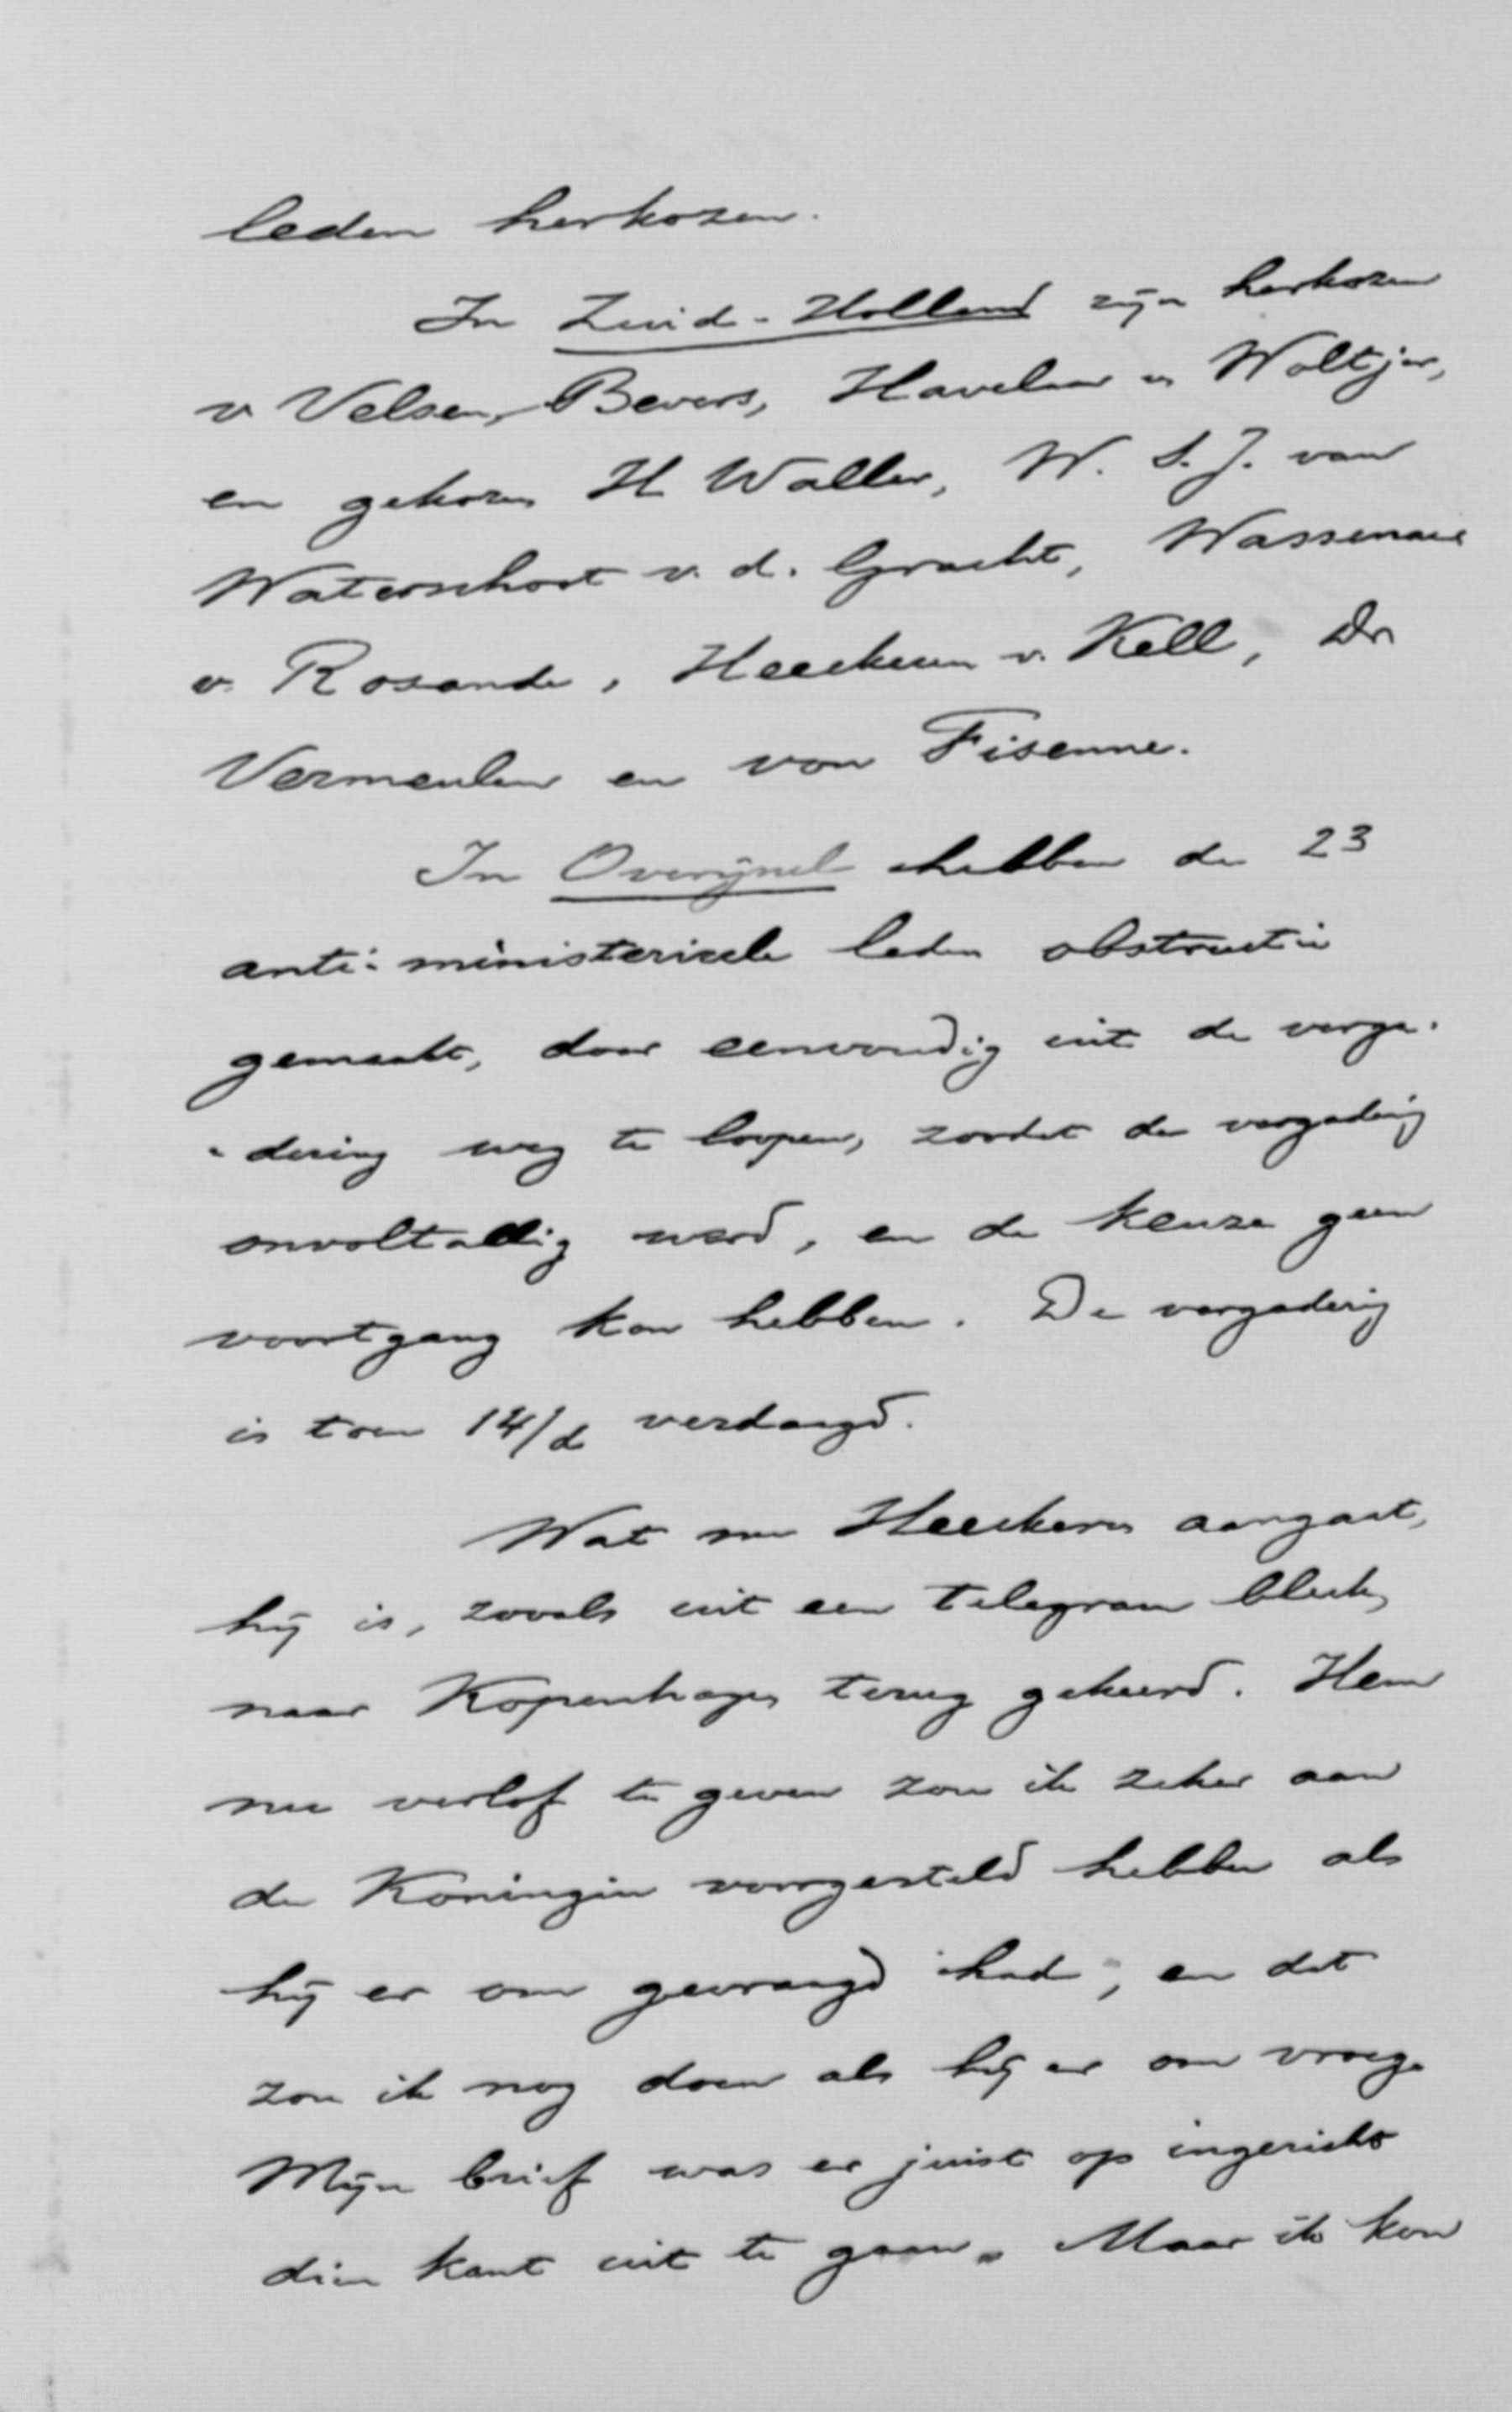 leden herkozen.
In Zuid-Holland zijn herkozen
v. Velsen, Bevers, Havelaar en Woltjer,
en gekozen H Waller, W. S. J. van
Waterschoot v. d. Gracht, Wassenaer
v. Rosande, Heeckeren v. Kell, Dr
Vermeulen en von Fisenne.
In Overijssel hebben de 23
anti-ministerieele leden obstructie
gemaakt, door eenvoudig uit de verga-
-dering weg te loopen, zoodat de vergadering
onvoltallig werd, en de keuze geen
voortgang kon hebben. De vergadering
is toen 14/d verdaagd.
Wat nu Heeckeren aangaat,
hij is, zooals uit een telegram bleek,
naar Kopenhagen terug gekeerd. Hem
nu verlof te geven zou ik zeker aan
de Koningin voorgesteld hebben als
hij er om gevraagd had; en dat
zou ik nog doen als hij er om vroeg.
Mijn brief was er juist op ingericht
dien kant uit te gaan. Maar ik kon